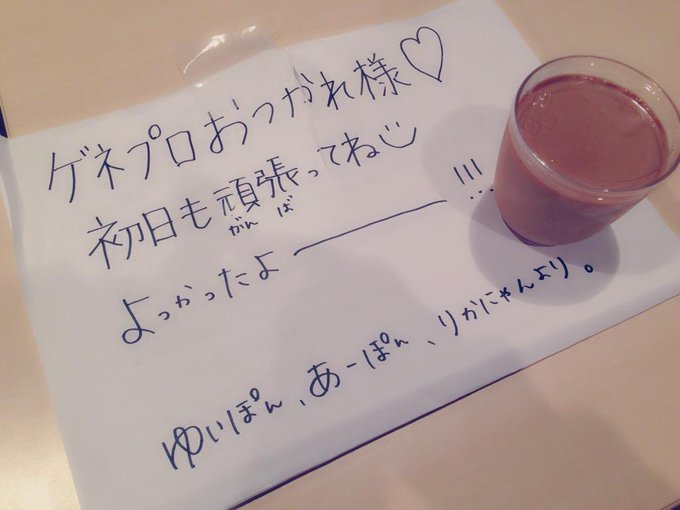 ゲネプロおつかれ様♡
初日も頑張ってね
がんば
よっかったよ────!!!
ゆいぽん、あーぽん、りかにゃんより。